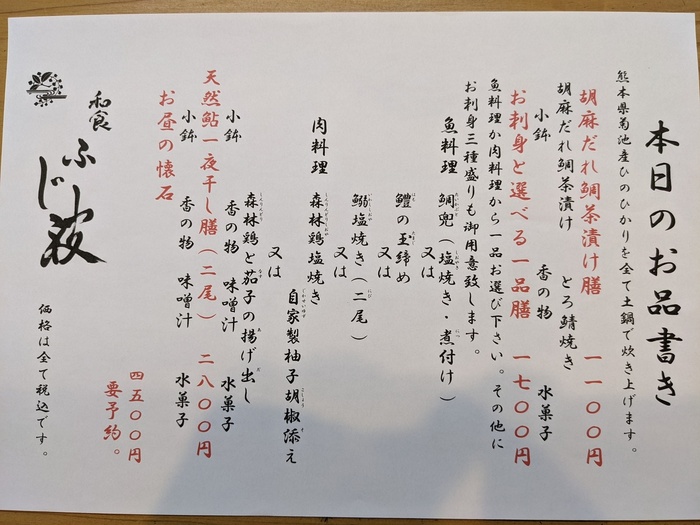 本日のお品書き
熊本県菊池産ひのひかりを全て土鍋で炊き上げます。
胡麻だれ鯛茶漬け膳 一一〇〇円
胡麻だれ鯛茶漬け とろ鯖焼き
小鉢 香の物 水菓子
お刺身と選べる一品膳 一七〇〇円
魚料理か肉料理から一品お選び下さい。その他に
お刺身三種盛りも御用意致します。
魚料理 鯛兜(塩焼き・煮付け)
又は
鱧の玉締め
又は
鰯塩焼き(二尾)
又は
肉料理 森林鶏塩焼き
自家製柚子胡椒添え
又は
森林鶏と茄子の揚げ出し
小鉢 香の物 味噌汁 水菓子
天然鮎一夜干し膳(二尾) 二八〇〇円
小鉢 香の物 味噌汁 水菓子
お昼の懐石 四五〇〇円
要予約。
和食
ふじ
価格は全て税込です。